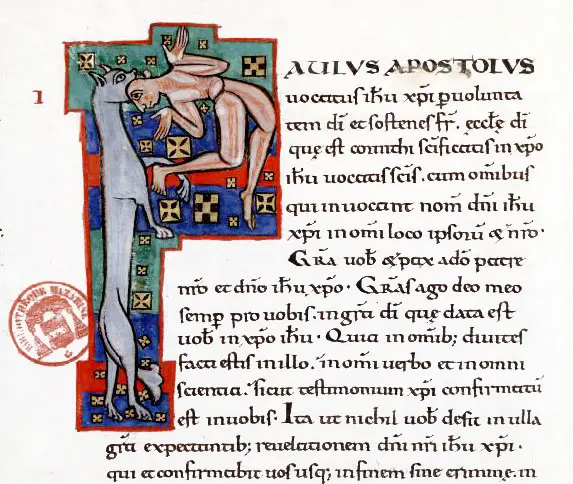 I
PAULVS APOSTOLVS
uocatus ihū xp̄i p̱uolunta
tem dī et sostenes fr̄. eccłę dī
quę est corinthi sc̄ificatis in xp̄o
ihū uocatis sc̄is. cum om̄ibus
qui inuocant nom̄ dn̄i ihū
xp̄i in om̄i loco ipsorū & nr̄o.
Gr̄a uob̄ & pax adō patre
nr̄o et dn̄o ihū xp̄o. Gr̄as ago deo meo
semp̱ pro uobis. in gr̄a dī quę data est
uob̄ in xp̄o ihū. Quia in om̄ib; diuites
facti estis in illo. in om̄i uerbo et in omni
scientia. sicut testimonium xp̄i confirmatū
est in uobis. Ita ut nichil uob̄ desit in ulla
gr̄a expectantib; reuelationem dn̄i nr̄i ihū xp̄i.
qui et confirmabit uos usq; in finem sine crimine. in
BIBLIOTHEQUE MAZARINE